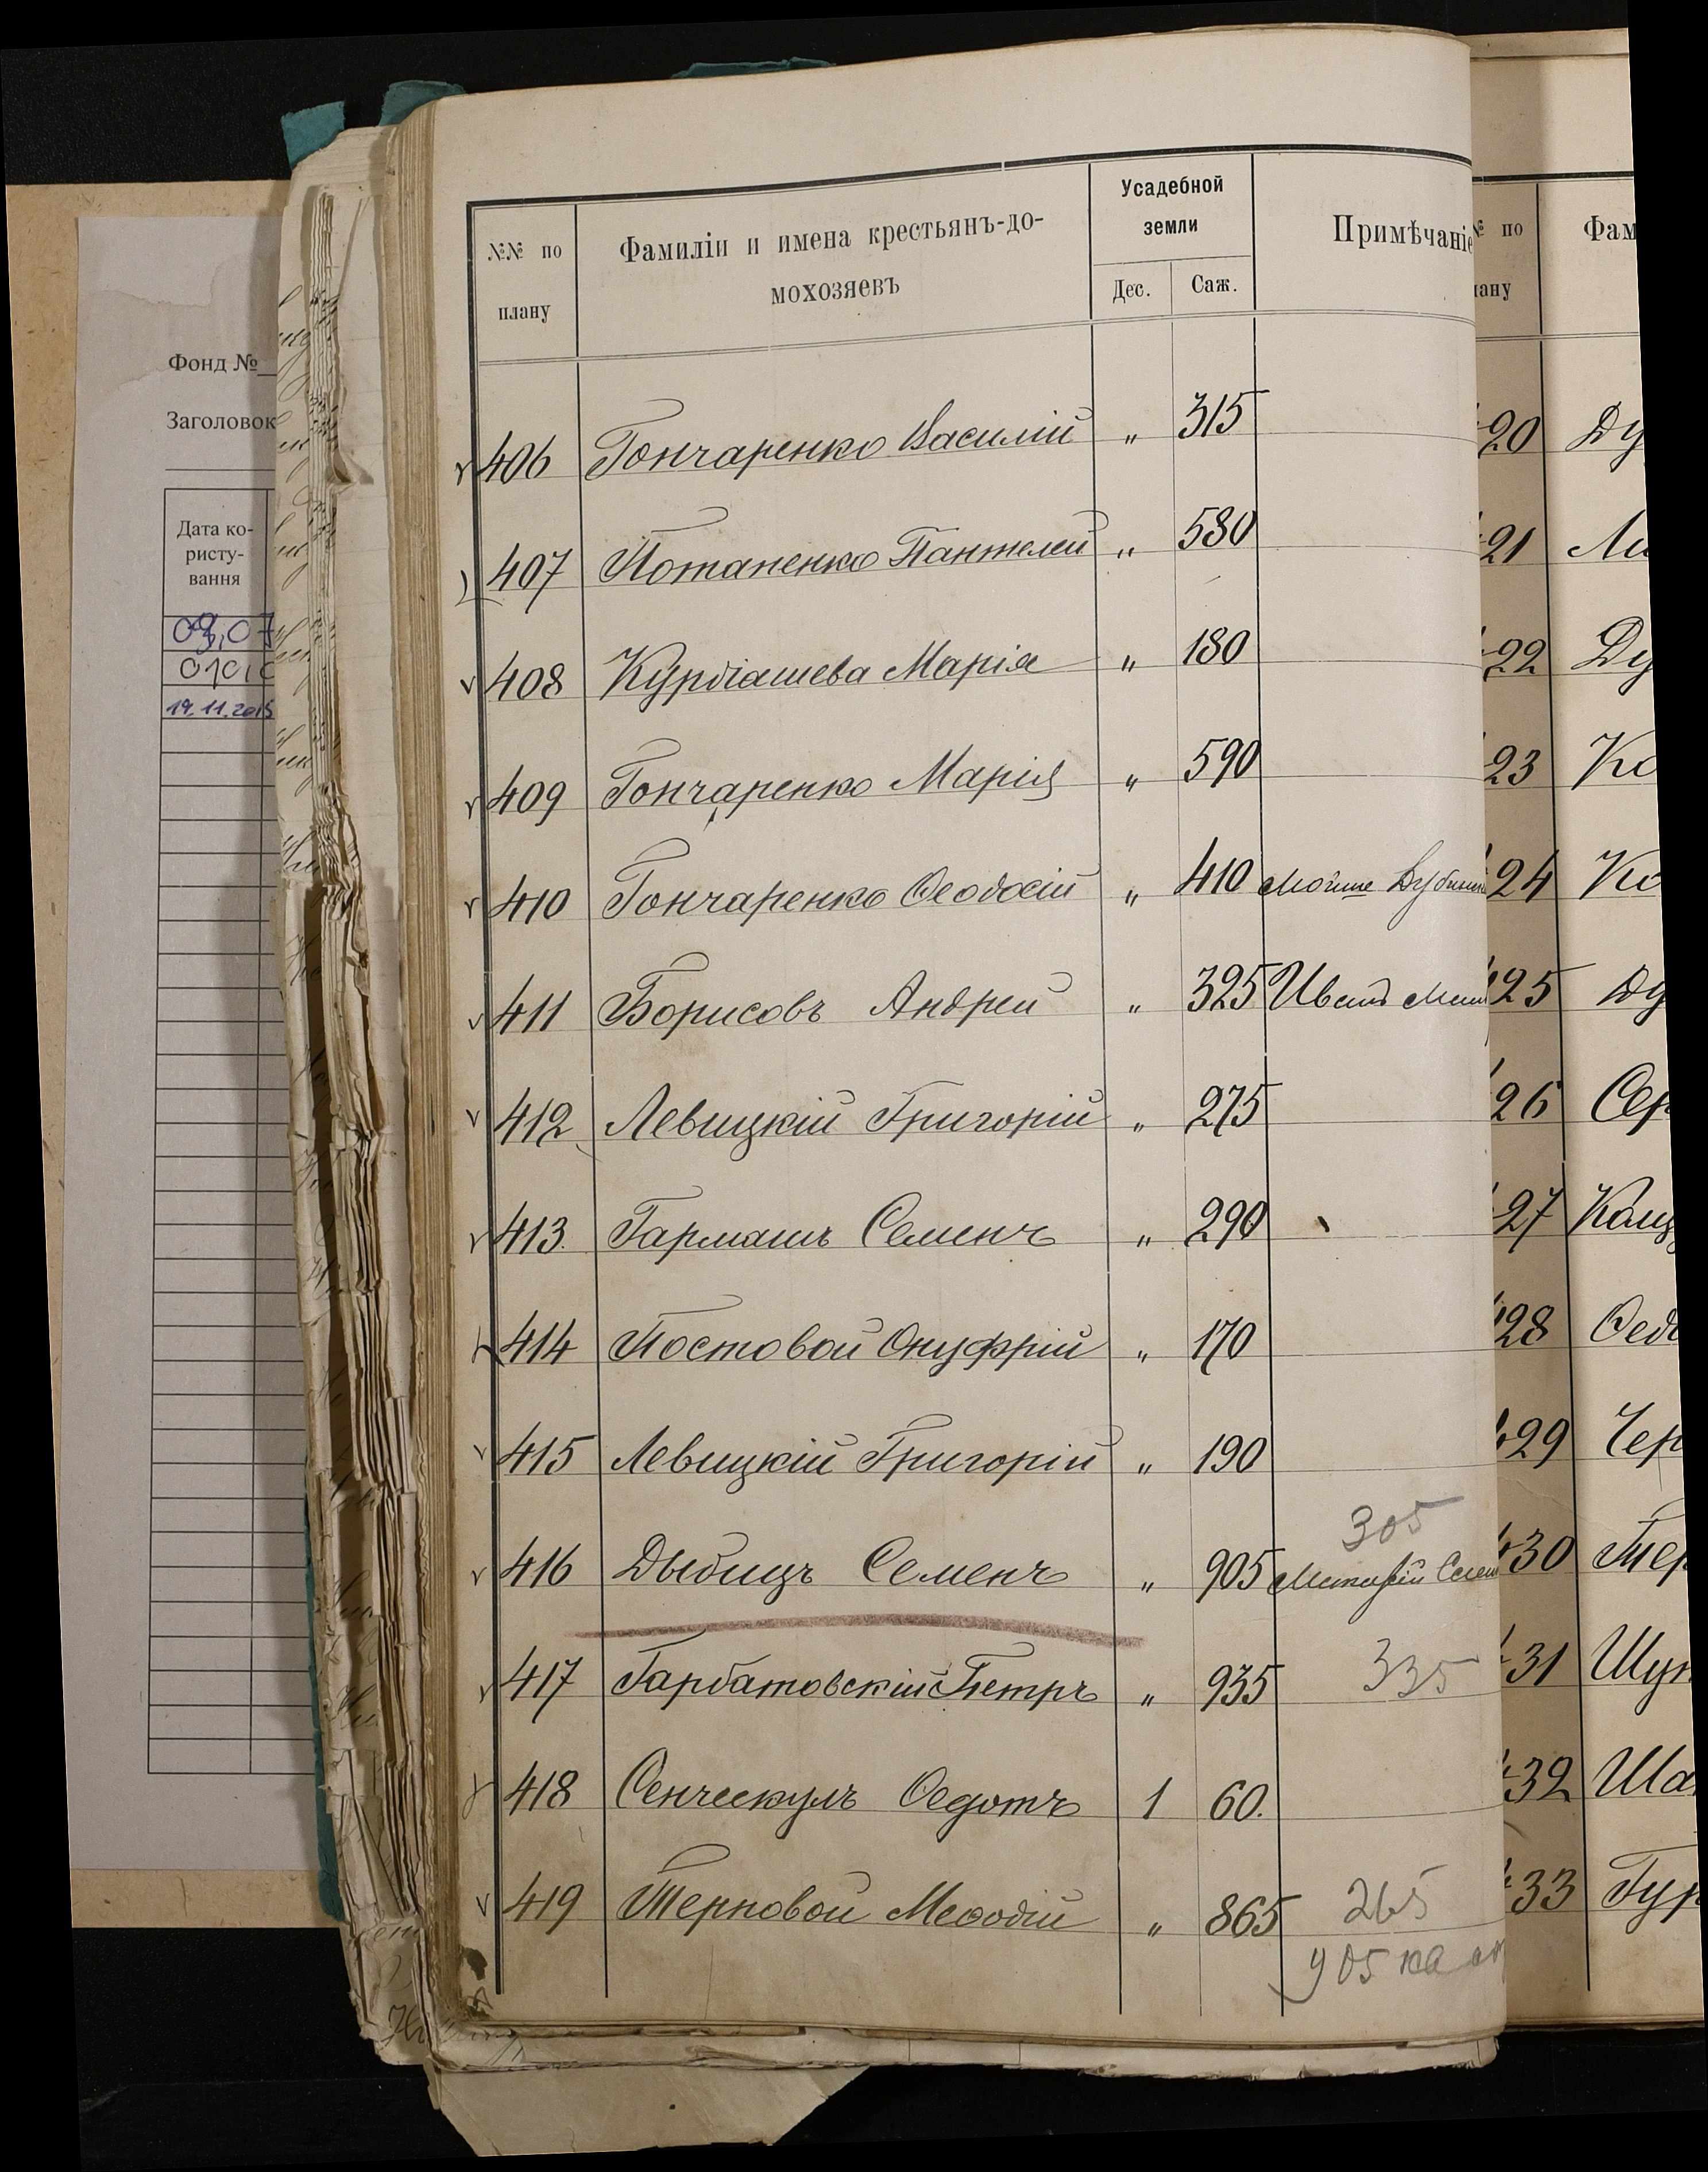 Фонд №
Заголовок
Дата ко-
ристу-
вання
09,07
010,0
19.11.2015
№№ по плану
Фамиліи и имена крестьянъ-до-
мохозяевъ
Усадебной
земли
Дес. Саж.
Примѣчаніе
406 Гончаренко Василій „ 315
407 Потапенко Пантелей „ 580
408 Курдіашева Марія „ 180
409 Гончаренко Марія „ 590
410 Гончаренко Ѳеодосій „ 410
411 Борисовъ Андрей „ 325
412 Левицкій Григорій „ 275
413. Гармашъ Семенъ „ 290
414 Постовой Онуфрій „ 170
415 Левицкій Григорій „ 190
305
416 Дыбицъ Семенъ „ 905
417 Гарбатовскій Петръ „ 935 335
418 Сенческулъ Ѳедотъ 1 60.
419 Терновой Меѳодій „ 865 265
905 кв
№ по
лану
Фам
420 Ду
421 Ли
422 Ду
423 Ко
424 Ко
425 Ду
426 Сер
427 Кащ
428 Ѳедо
429 Чер
430 Тер
431 Шун
432 Ша
433 Гур